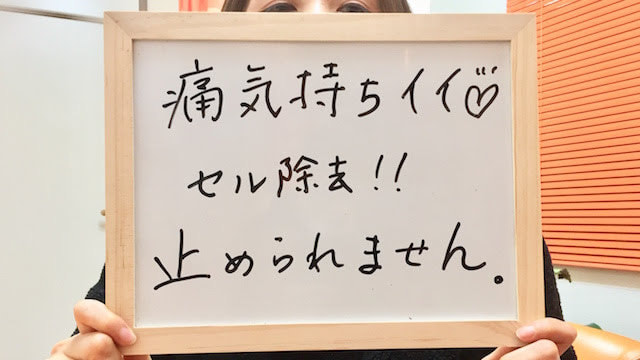 痛気持ちイイ♡
セル除去!!
止められません。